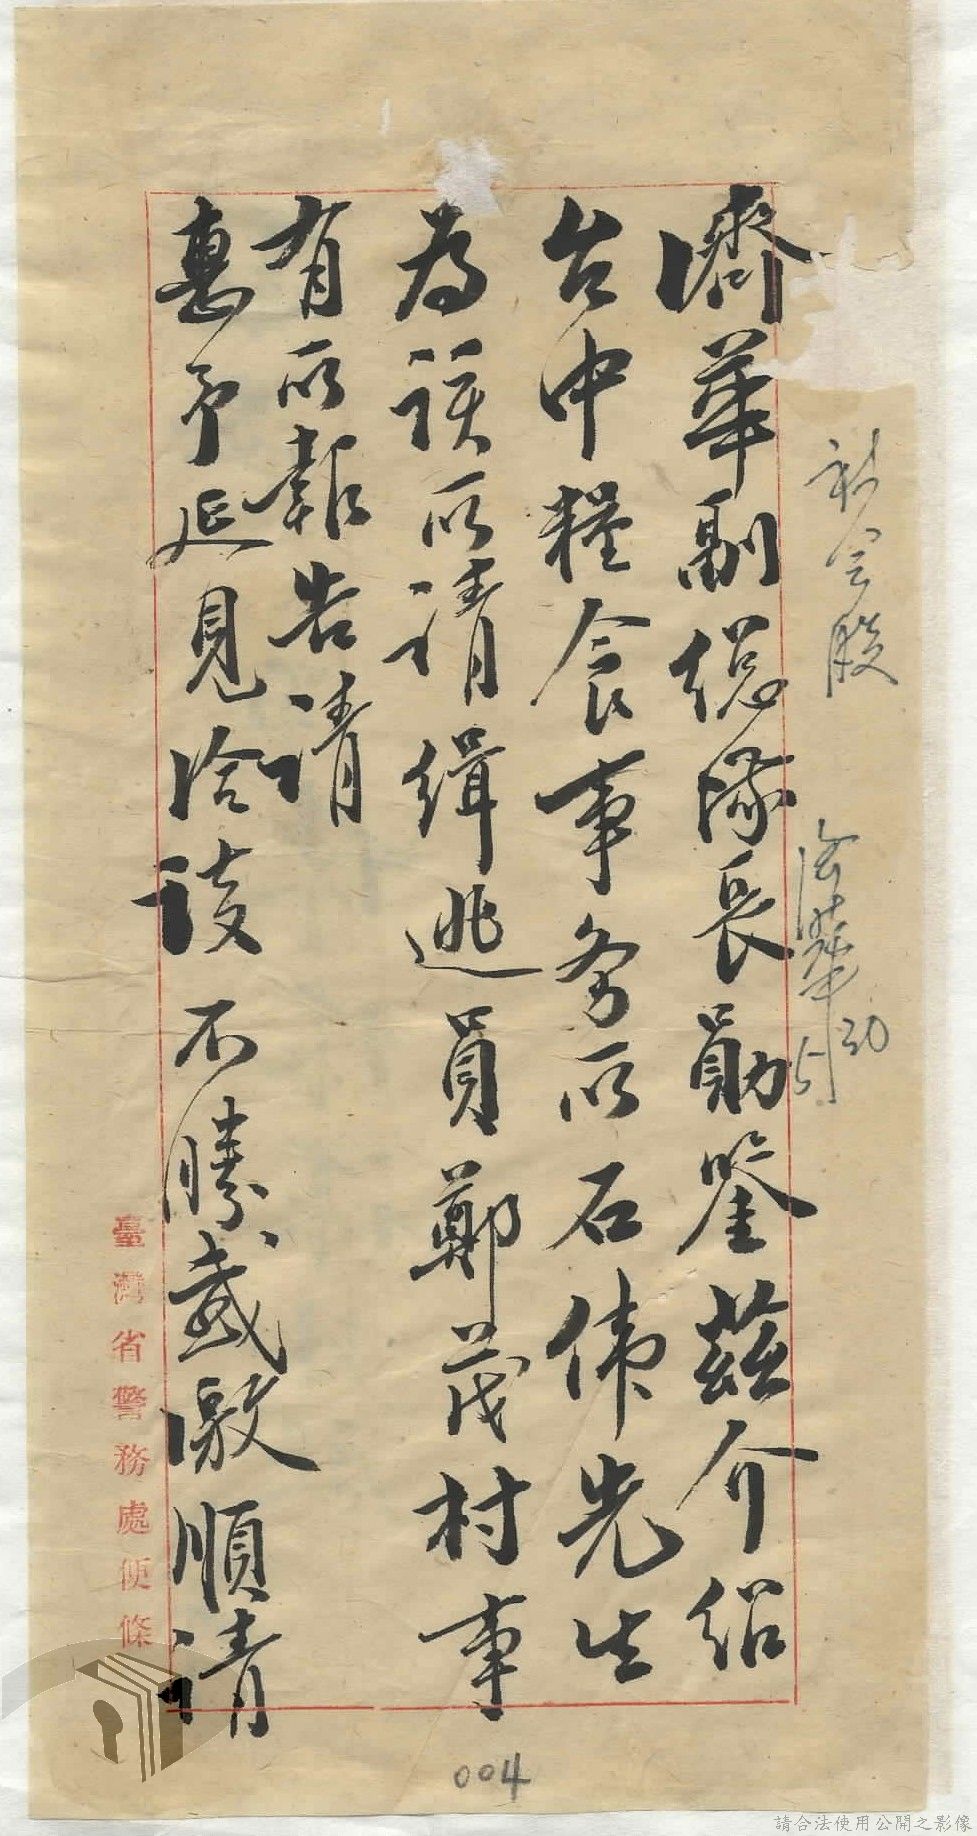 濟華副總隊長勛鑒茲介紹
台中糧食事务所石偉先生
為該所请缉逃員鄭茂村事
有所報告请
惠予延見洽談不勝感激順请
臺灣省警務處便條
社会股
濟華
004
請合法使用公開之影像